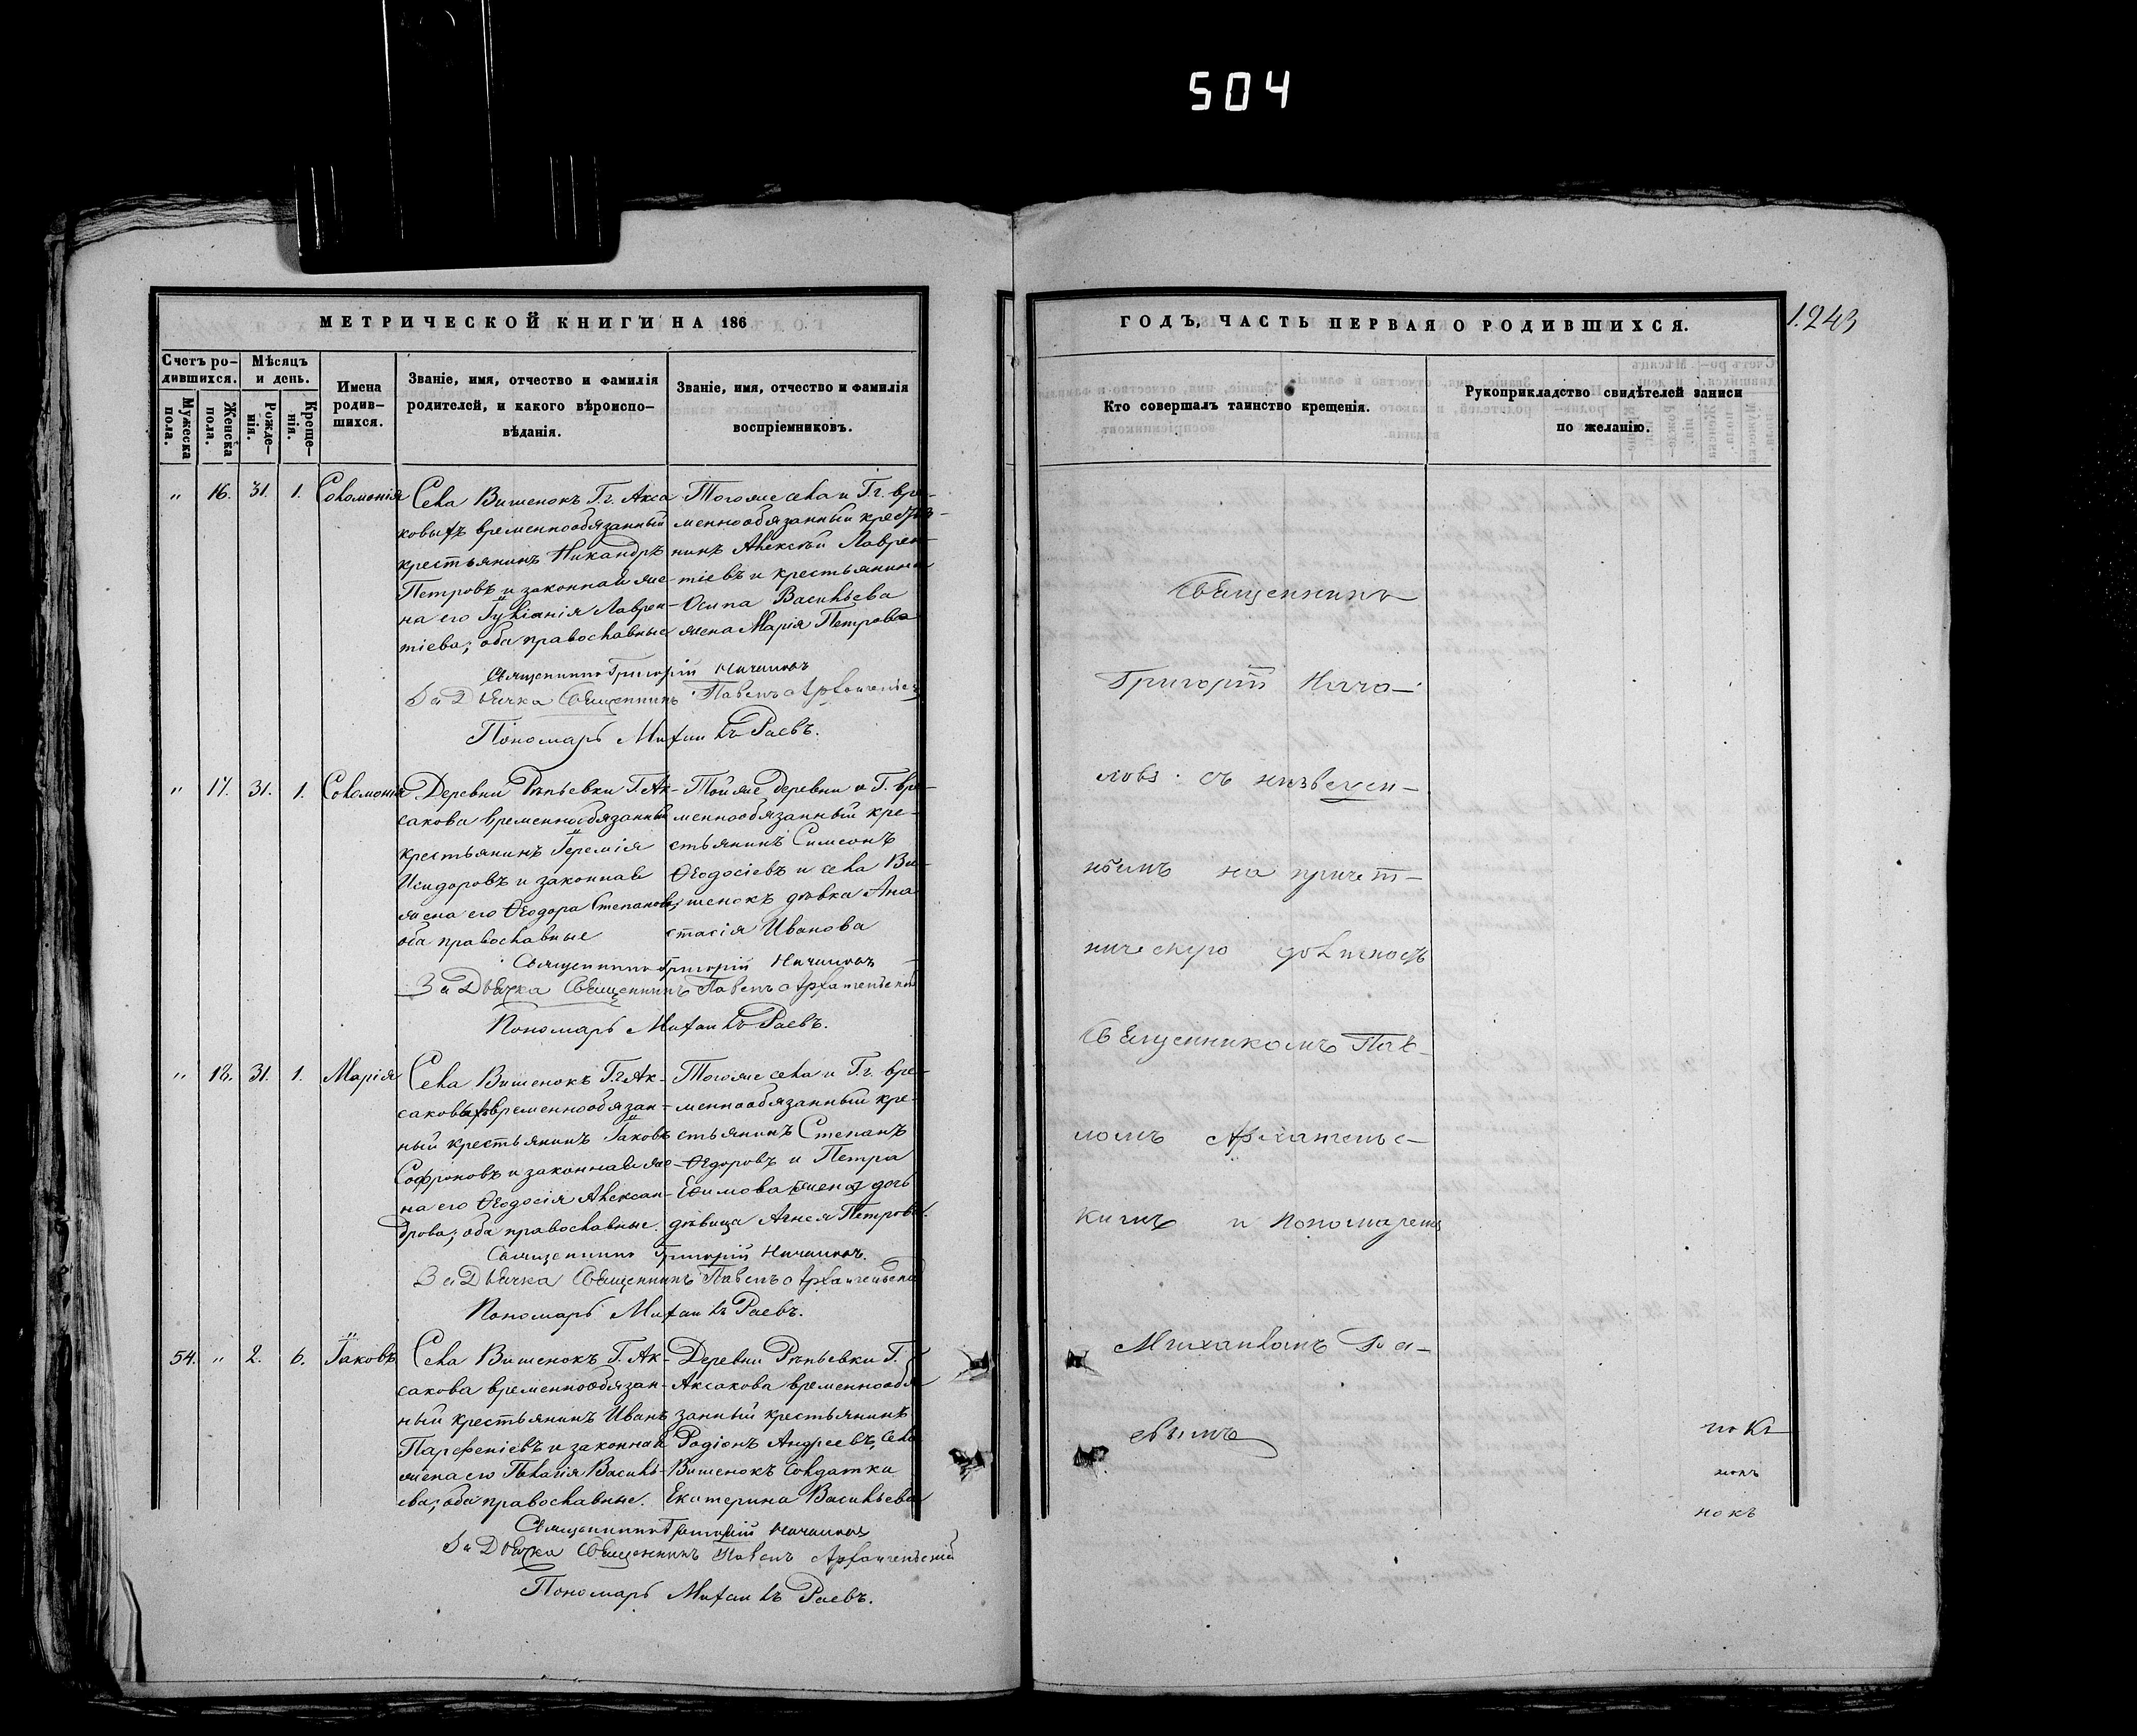 504
МЕТРИЧЕСКОЙ КНИГИ НА 186
Счетъ ро-
дившихся.
Мужеска пола.
Женска пола.
Мѣсяцъ
и день.
Рожде-
нія.
Креще-
нія.
Имена
родив-
шихся.
Званіе, имя, отчество и фамилія
родителей, и какого вѣроиспо-
вѣданія.
Званіе, имя, отчество и фамилія
воспріемниковъ.
" 16. 31. 1. Соломонія
Села Вишенокъ Г.г. Акса
ковыхъ временнообязанный
крестьянинъ Никандръ
Петровъ и законная же-
на его Іуліанія Лаврен-
тіева; оба православные
Тогоже села и Г.г. вре-
меннообязанный крестья-
нинъ Алексѣй Лаврен-
тіевъ и крестьянина
Осипа Васильева
жена Марія Петрова
Священникъ Григорій Началовъ
За Дьячка Священникъ Павелъ Архангельск
Пономарь Михаилъ Раевъ.
" 17. 31. 1. Соломонія
Деревни Рѣпьевки Г. Ак-
сакова временнообязанный
крестьянинъ Іеремія
Исидоровъ и законная
жена его Ѳеодора Степанова;
оба православные
Тойже деревни и Г. вре-
меннообязанный кре-
стьянинъ Симеонъ
Ѳеодосіевъ и села Ви-
шенокъ дѣвка Ана
стасія Иванова
Священникъ Григорій Началовъ
За Дьячка Священникъ Павелъ Архангельскій
Пономарь Михаилъ Раевъ.
" 18. 31. 1. Марія
Села Вишенокъ Г.г. Ак-
саковыхъ временнообязан-
ный крестьянинъ Іаковъ
Софроновъ и законная же-
на его Ѳеодосія Алексан-
дрова; оба православные.
Тогоже села и Г.г. вре-
меннообязанный кре-
стьянинъ Степанъ
Ѳедоровъ и Петра
Ефимова жена дочь
дѣвица Агнея Петрова.
Священникъ Григорій Началовъ.
За Дьячка Священникъ Павелъ Архангельскій
Пономарь Михаилъ Раевъ.
54. " 2. 6. Іаковъ
Села Вишенокъ Г. Ак-
сакова временнообязан-
ный крестьянинъ Иванъ
Парѳеніевъ и законная
жена его Пелагія Василь-
ева; оба православные.
Деревни Рѣпьевки Г.
Аксакова временнообя
занный крестьянинъ
Родіонъ Андреевъ, села
Вишенокъ солдатка
Екатерина Васильева
Священникъ Григорій Началовъ
За Дьячка Священникъ Павелъ Архангельскій
Пономарь Михаилъ Раевъ.
ГОДЪ, ЧАСТЬ ПЕРВАЯ О РОДИВШИХСЯ.
1.243
Кто совершалъ таинство крещенія.
Рукоприкладство свидѣтелей записи
по желанію.
Священникъ
Григорій Нача-
ловъ съ низведен-
нымъ на причет-
ническую должность
Священникомъ Пав-
ломъ Архангельс-
кимъ и Пономаремъ
Михаиломъ Ра-
евымъ
нокъ